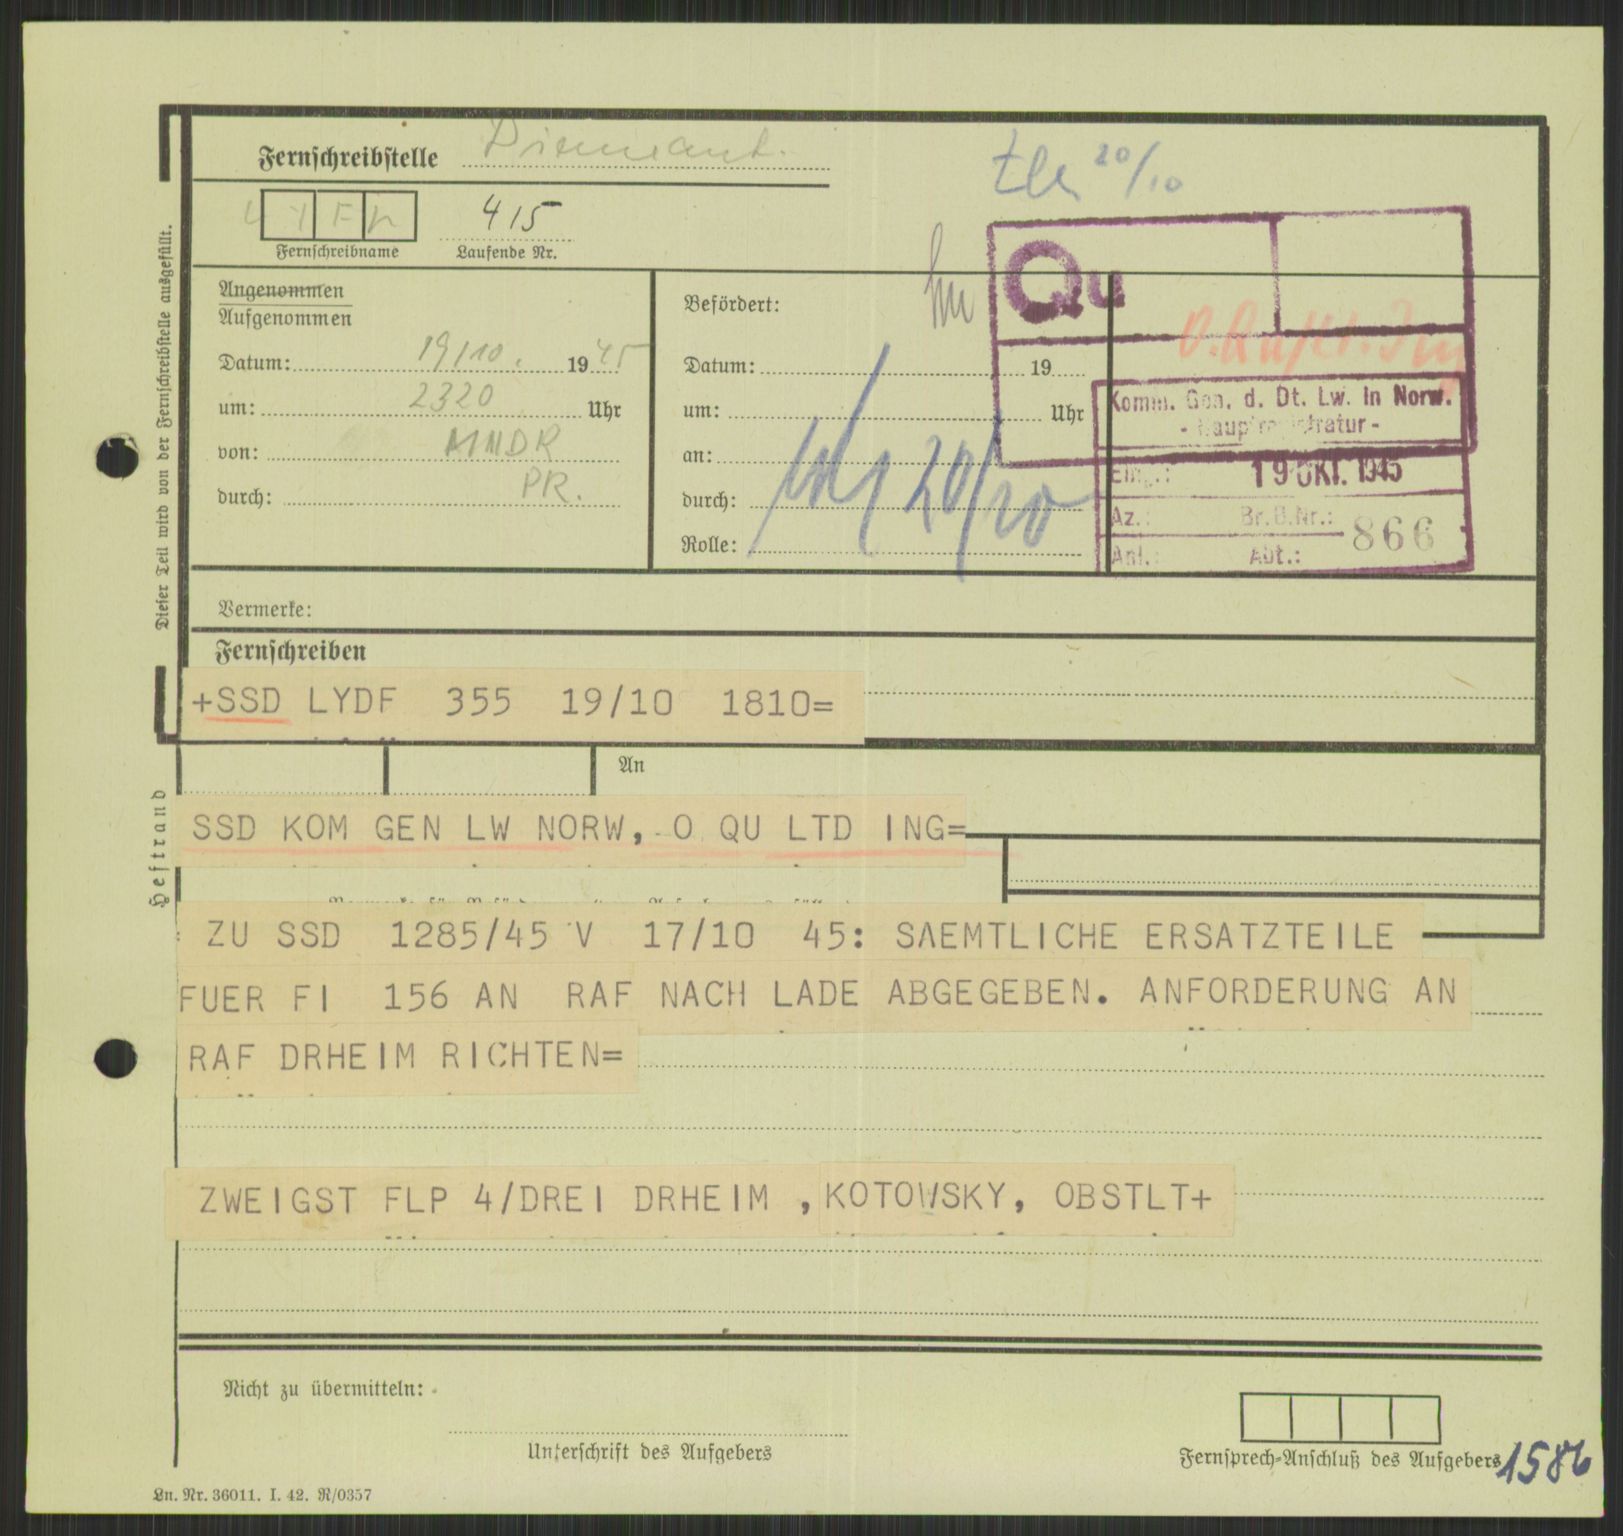 Fernschreibstelle Diemeant.
20/10
L Y F R
415
Fernschreibname
Laufende Nr.
Qu
Angenommen
Aufgenommen
Datum: 19/10. 1945
um: 2320 Uhr
von: MMDR
durch: PR.
Befördert:
Datum: 19
um: Uhr
an:
durch:
Rolle:
20/10
Komm. Gen. d. Dt. Lw. in Norw.
- Hauptregistratur -
Eing.: 19 OKT. 1945
Az.: Br.B.Nr.: 866
Anl.: Abt.:
Dieser Teil wird von der Fernschreibstelle ausgefüllt.
Vermerke:
Fernschreiben
+SSD LYDF 355 19/10 1810=
An
SSD KOM GEN LW NORW, O QU LTD ING=
Heftrand
ZU SSD 1285/45 V 17/10 45: SAEMTLICHE ERSATZTEILE
FUER FI 156 AN RAF NACH LADE ABGEGEBEN. ANFORDERUNG AN
RAF DRHEIM RICHTEN=
ZWEIGST FLP 4/DREI DRHEIM ,KOTOWSKY, OBSTLT+
Nicht zu übermitteln:
Unterschrift des Aufgebers
Fernsprech-Anschluß des Aufgebers
1586
Ln. Nr. 36011. I. 42. R/0357